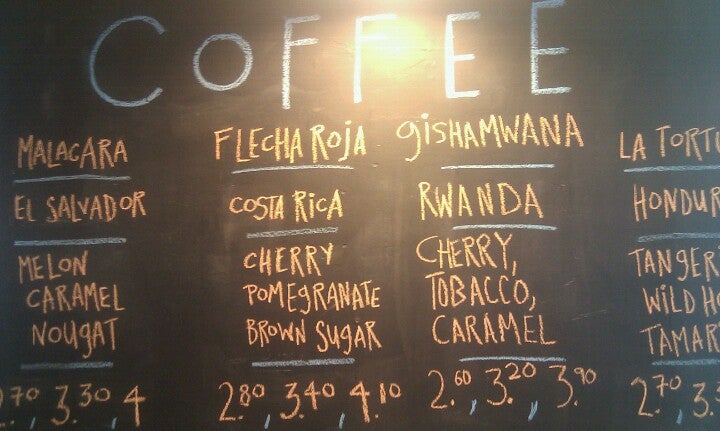 COFFEE
MALACARA
EL SALVADOR
MELON
CARAMEL
NOUGAT
.70, 3.30, 4
FLECHA ROJA
COSTA RICA
CHERRY
POMEGRANATE
BROWN SUGAR
2.80, 3.40, 4.10
GISHAMWANA
RWANDA
CHERRY,
TOBACCO,
CARAMEL
2.60, 3.20, 3.90
LA TORTU
HONDUR
TANGER
WILD HO
TAMAR
2.70, 3.